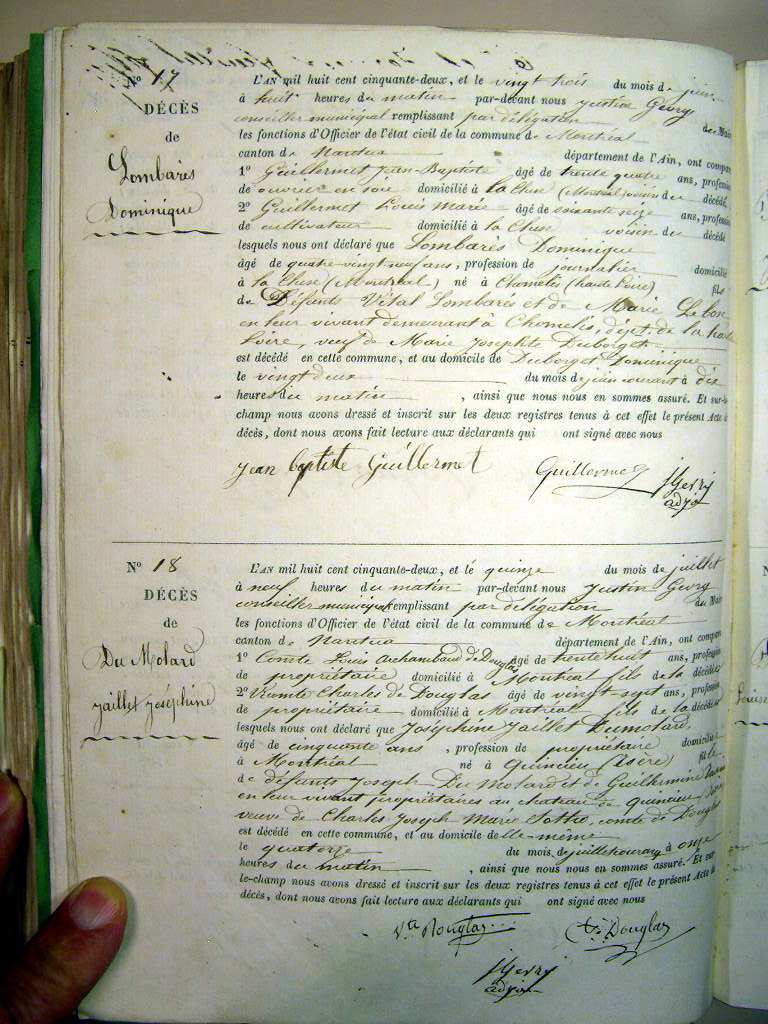 N° 17
DÉCÈS
de
Lombarès
Dominique
L'AN mil huit cent cinquante-deux, et le vingt trois du mois de juin
à huit heures du matin par-devant nous Justin Gevry
conseiller municipal remplissant par délégation de Mair
les fonctions d'Officier de l'état civil de la commune de Montréal
canton de Nantua département de l'Ain, ont compar
1° Guillermet Jean-Baptiste âgé de trente quatre ans, profession
de ouvrier en soie domicilié à la Cluse (Montréal) voisin du décédé,
2° Guillermet Louis Marie âgé de soixante seize ans, profession
de cultivateur domicilié à la Cluse voisin du décédé
lesquels nous ont déclaré que Lombarès Dominique
âgé de quatre vingt neuf ans, profession de journalier domicilié
à la Cluse (Montréal) né à Chomelis (haute Loire) fils
de Défunts Vital Lombarès et de Marie Lebon
en leur vivant demeurant à Chomelis, dépt. de la haute
Loire, veuf de Marie Josephte Duborget
est décédé en cette commune, et au domicile de Duborget Dominique
le vingt deux du mois de juin courant à dix
heures du matin , ainsi que nous nous en sommes assuré. Et sur-le
champ nous avons dressé et inscrit sur les deux registres tenus à cet effet le présent Acte d
décès, dont nous avons fait lecture aux déclarants qui ont signé avec nous
Jean baptiste Guillermet Guillermet JGevry
adjoi
N° 18
DÉCÈS
de
Du Molard
Jaillet Joséphine
L'AN mil huit cent cinquante-deux, et le quinze du mois de juillet
à neuf heures du matin par-devant nous Justin Gevry
conseiller municipal remplissant par délégation du Mair
les fonctions d'Officier de l'état civil de la commune de Montréal
canton de Nantua département de l'Ain, ont compar
1° Comte Louis Archambaud de Douglas âgé de trente huit ans, profession
de propriétaire domicilié à Montréal fils de la décédée
2° Vicomte Charles de Douglas âgé de vingt sept ans, profession
de propriétaire domicilié à Montréal fils de la décédée
lesquels nous ont déclaré que Joséphine Jaillet Dumolard
âgé de cinquante ans , profession de propriétaire domicilié
à Montréal né à Quincieu (Isère) fille
de défunts Joseph Du Molard et de Guillermine
en leur vivant propriétaires au chateau de Quincieu
veuve de Charles Joseph Marie Sotho, comte de Douglas
est décédé en cette commune, et au domicile de elle-même
le quatorze du mois de juillet courant à onze
heures du matin , ainsi que nous nous en sommes assuré. Et sur
le-champ nous avons dressé et inscrit sur les deux registres tenus à cet effet le présent Acte de
décès, dont nous avons fait lecture aux déclarants qui ont signé avec nous
Vte Douglas Cte Douglas
JGevry
adjoi